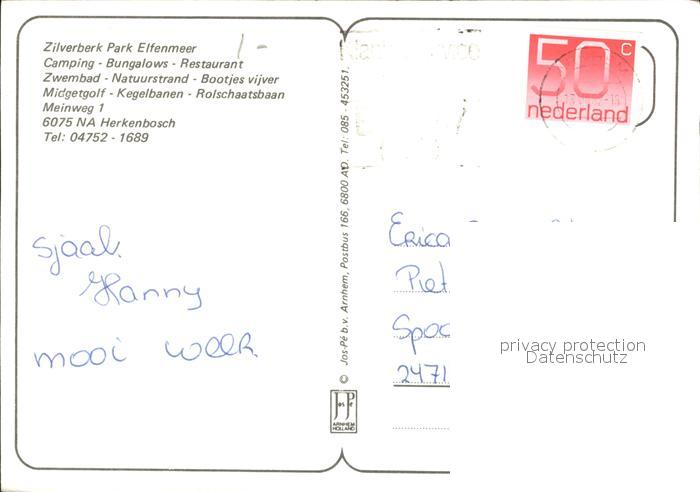 Zilverberk Park Elfenmeer
Camping - Bungalows - Restaurant
Zwembad - Natuurstrand - Bootjes vijver
Midgetgolf - Kegelbanen - Rolschaatsbaan
Meinweg 1
6075 NA Herkenbosch
Tel: 04752 - 1689
1-
sjaak
Hanny
mooi week
© Jos-Pé b.v. Arnhem, Postbus 166, 6800 AD. Tel: 085 - 453251.
Jos Pé
ARNHEM
HOLLAND
50 c
nederland
Erica
Piet
Spoo
2471
privacy protection
Datenschutz